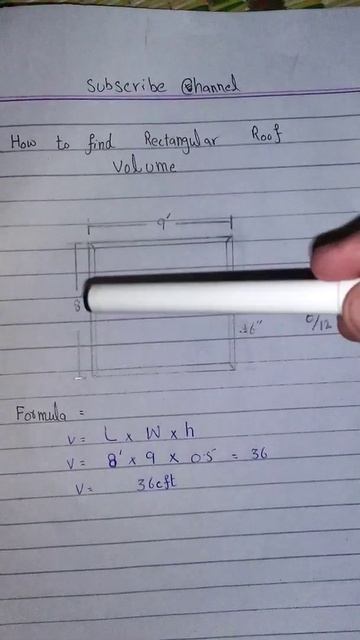 Subscribe Channel
How to find Rectangular Roof
Volume
9'
8
6"
6/12
Formula =
V = L x W x h
V = 8' x 9 x 0.5 = 36
V = 36cft